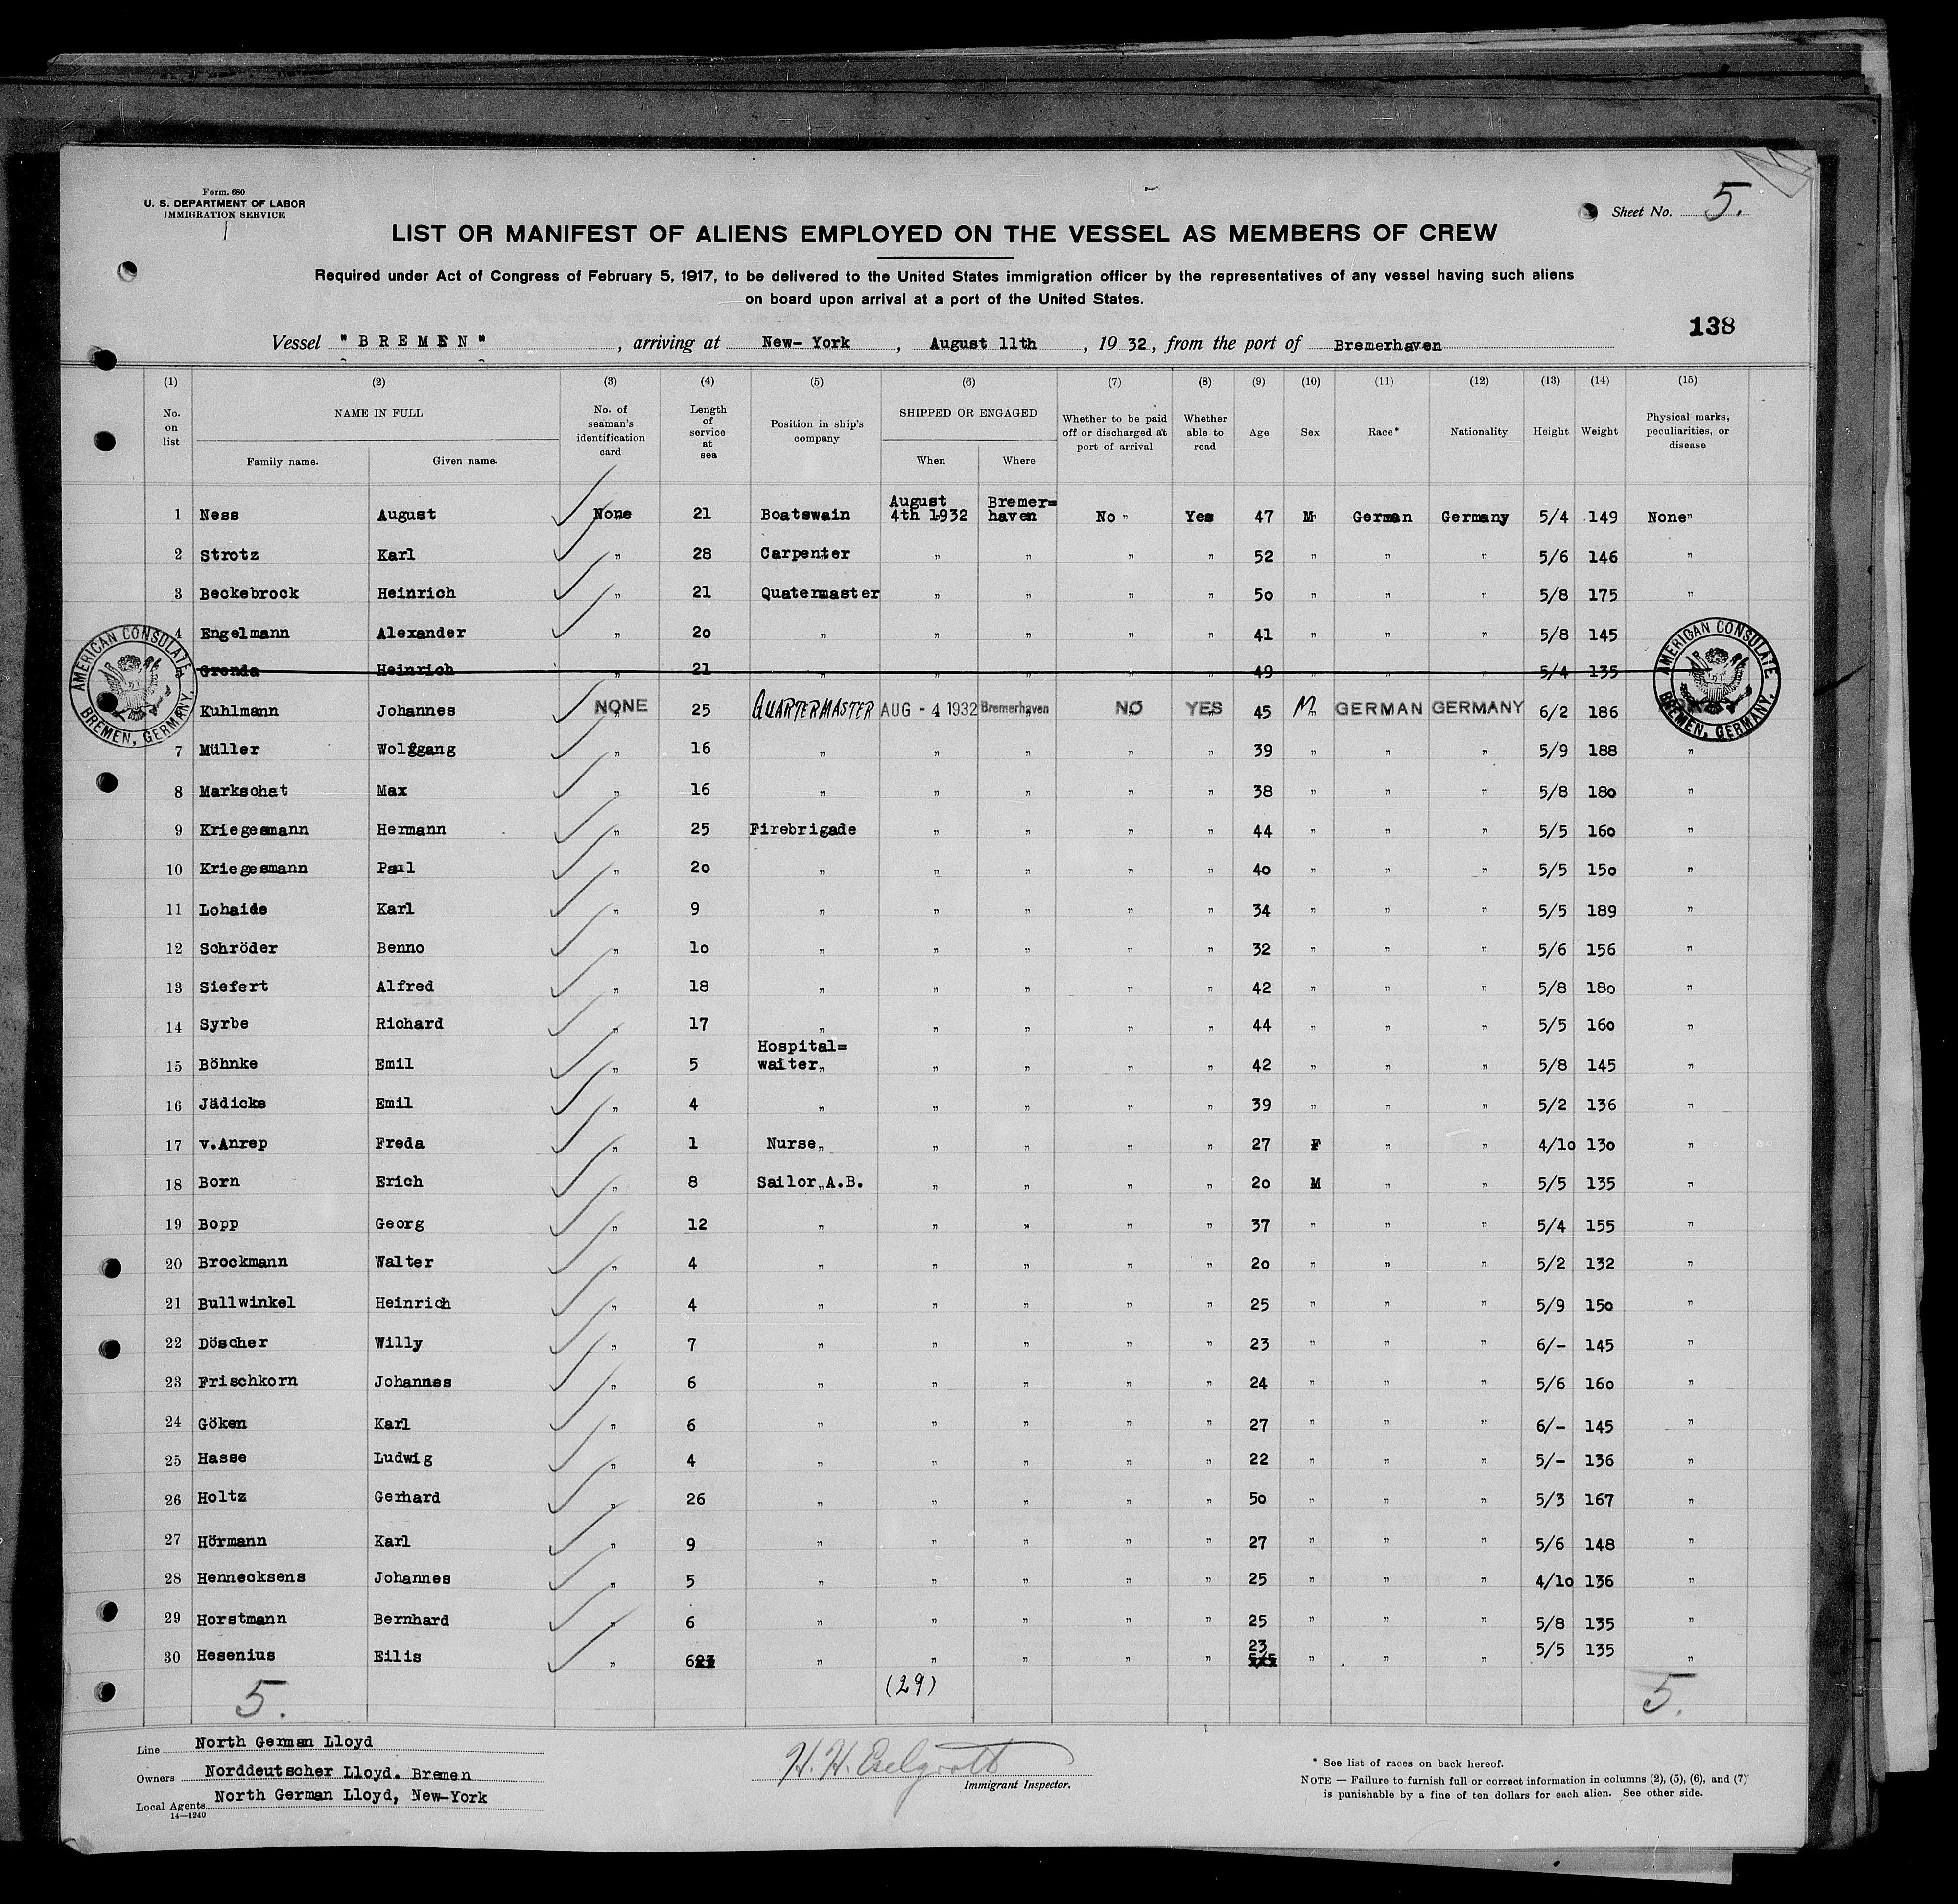 Form. 680
U. S. DEPARTMENT OF LABOR
IMMIGRATION SERVICE
Sheet No. 5.
LIST OR MANIFEST OF ALIENS EMPLOYED ON THE VESSEL AS MEMBERS OF CREW
Required under Act of Congress of February 5, 1917, to be delivered to the United States immigration officer by the representatives of any vessel having such aliens
on board upon arrival at a port of the United States.
138
Vessel "BREMEN", arriving at New-York, August 11th, 1932, from the port of Bremerhaven
(1) (2) (3) (4) (5) (6) (7) (8) (9) (10) (11) (12) (13) (14) (15)
No. on list NAME IN FULL Family name. Given name. No. of seaman's identification card Length of service at sea Position in ship's company SHIPPED OR ENGAGED When Where Whether to be paid off or discharged at port of arrival Whether able to read Age Sex Race* Nationality Height Weight Physical marks, peculiarities, or disease
1 Ness August None 21 Boatswain August 4th 1932 Bremer=haven No Yes 47 M German Germany 5/4 149 None
2 Strotz Karl " 28 Carpenter " " " " 52 " " " 5/6 146 "
3 Beckebrock Heinrich " 21 Quatermaster " " " " 50 " " " 5/8 175 "
4 Engelmann Alexander " 20 " " " " " 41 " " " 5/8 145 "
Grenda Heinrich 21 " " " " " 49 " " " 5/4 135
Kuhlmann Johannes NONE 25 QUARTERMASTER AUG - 4 1932 Bremerhaven NO YES 45 M GERMAN GERMANY 6/2 186
7 Müller Wolfgang " 16 " " " " " 39 " " " 5/9 188 "
8 Markschat Max " 16 " " " " " 38 " " " 5/8 180 "
9 Kriegesmann Hermann " 25 Firebrigade " " " " 44 " " " 5/5 160 "
10 Kriegesmann Paul " 20 " " " " " 40 " " " 5/5 150 "
11 Lohaide Karl " 9 " " " " " 34 " " " 5/5 189 "
12 Schröder Benno " 10 " " " " " 32 " " " 5/6 156 "
13 Siefert Alfred " 18 " " " " " 42 " " " 5/8 180 "
14 Syrbe Richard " 17 " " " " " 44 " " " 5/5 160 "
15 Böhnke Emil " 5 Hospital=waiter " " " " 42 " " " 5/8 145 "
16 Jädicke Emil " 4 " " " " " 39 " " " 5/2 136 "
17 v.Anrep Freda " 1 Nurse " " " " 27 F " " 4/10 130 "
18 Born Erich " 8 Sailor A.B. " " " " 20 M " " 5/5 135 "
19 Bopp Georg " 12 " " " " " 37 " " " 5/4 155 "
20 Brockmann Walter " 4 " " " " " 20 " " " 5/2 132 "
21 Bullwinkel Heinrich " 4 " " " " " 25 " " " 5/9 150 "
22 Döscher Willy " 7 " " " " " 23 " " " 6/- 145 "
23 Frischkorn Johannes " 6 " " " " " 24 " " " 5/6 160 "
24 Göken Karl " 6 " " " " " 27 " " " 6/- 145 "
25 Hasse Ludwig " 4 " " " " " 22 " " " 5/- 136 "
26 Holtz Gerhard " 26 " " " " " 50 " " " 5/3 167 "
27 Hörmann Karl " 9 " " " " " 27 " " " 5/6 148 "
28 Hennecksens Johannes " 5 " " " " " 25 " " " 4/10 136 "
29 Horstmann Bernhard " 6 " " " " " 25 " " " 5/8 135 "
30 Hesenius Eilis " 6 " " " " " 23 " " " 5/5 135 "
5. (29) 5.
AMERICAN CONSULATE BREMEN, GERMANY.
AMERICAN CONSULATE BREMEN, GERMANY.
Line North German Lloyd
Owners Norddeutscher Lloyd. Bremen
Local Agents North German Lloyd, New-York
14—1240
Immigrant Inspector.
* See list of races on back hereof.
NOTE — Failure to furnish full or correct information in columns (2), (5), (6), and (7)
is punishable by a fine of ten dollars for each alien. See other side.